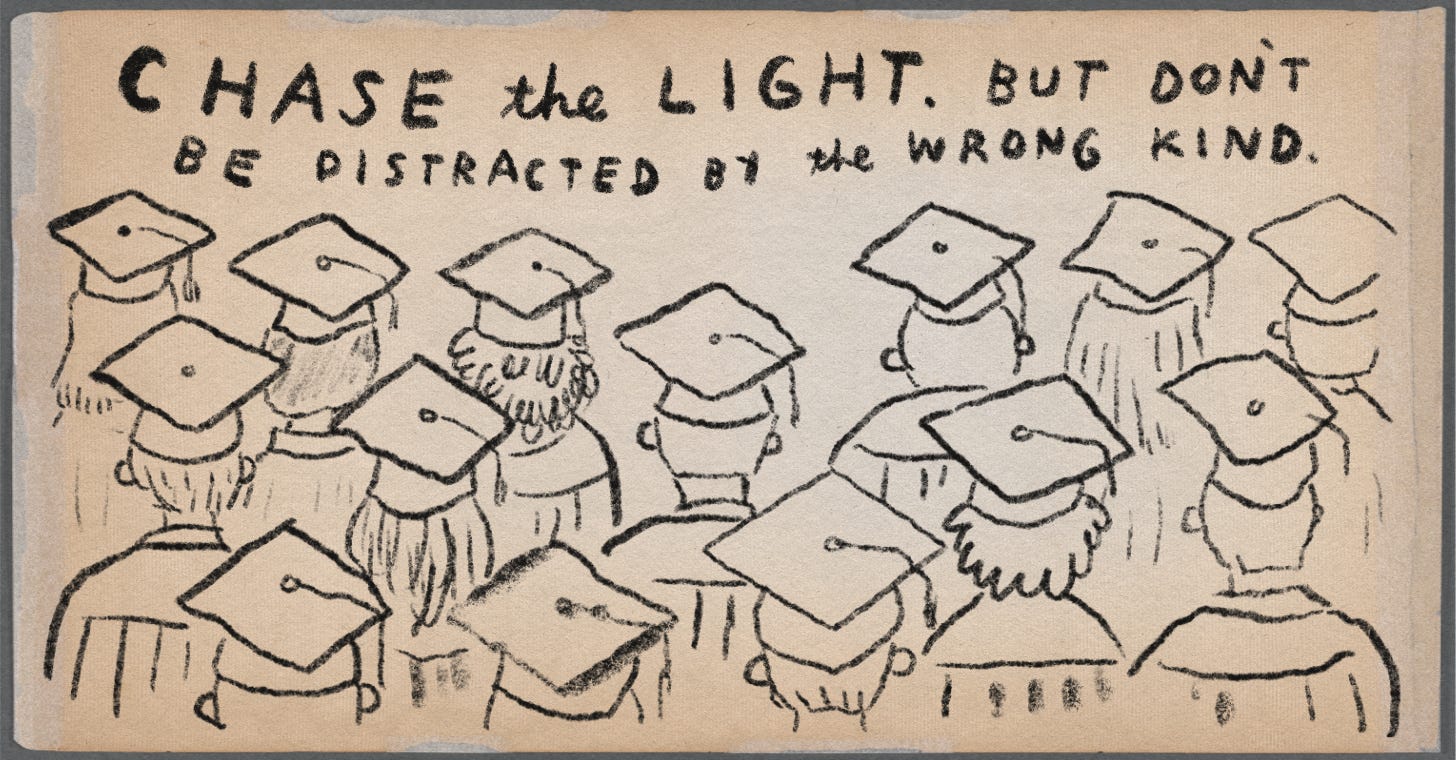 CHASE the LIGHT. BUT DON'T
BE DISTRACTED BY the WRONG KIND.